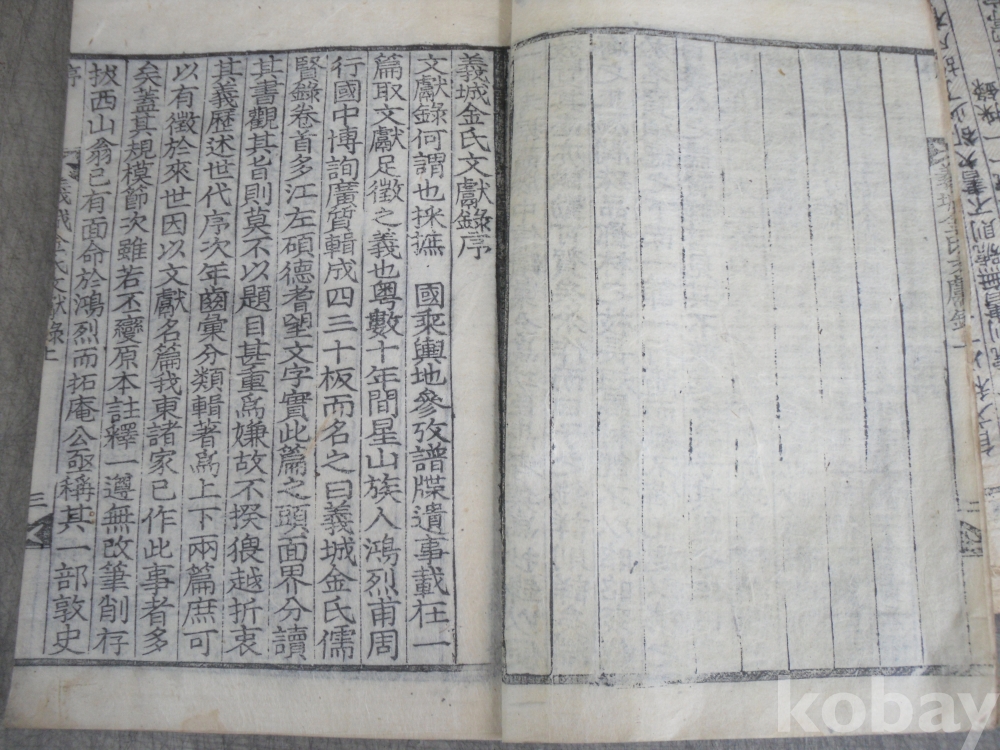 義城金氏文獻錄序
文獻錄何謂也採摭 國乘輿地參攷譜牒遺事載在一
篇取文獻足徵之義也粤數十年間星山族人鴻烈甫周
行國中博詢廣質輯成四三十板而名之曰義城金氏儒
賢錄卷首多江左碩德耆望文字實此篇之頭面界分讀
其書觀其旨則莫不以題目甚重爲嫌故不揆猥越折衷
其義歷述世代序次年齒彙分類輯著爲上下兩篇庶可
以有徵於來世因以文獻名篇我東諸家已作此事者多
矣蓋其規模節次雖若丕變原本註釋一遵無改筆削存
拔西山翁已有面命於鴻烈而拓庵公亟稱其一部敦史
義城金氏文獻錄上
序
三
義城金氏文獻錄
二
kobay